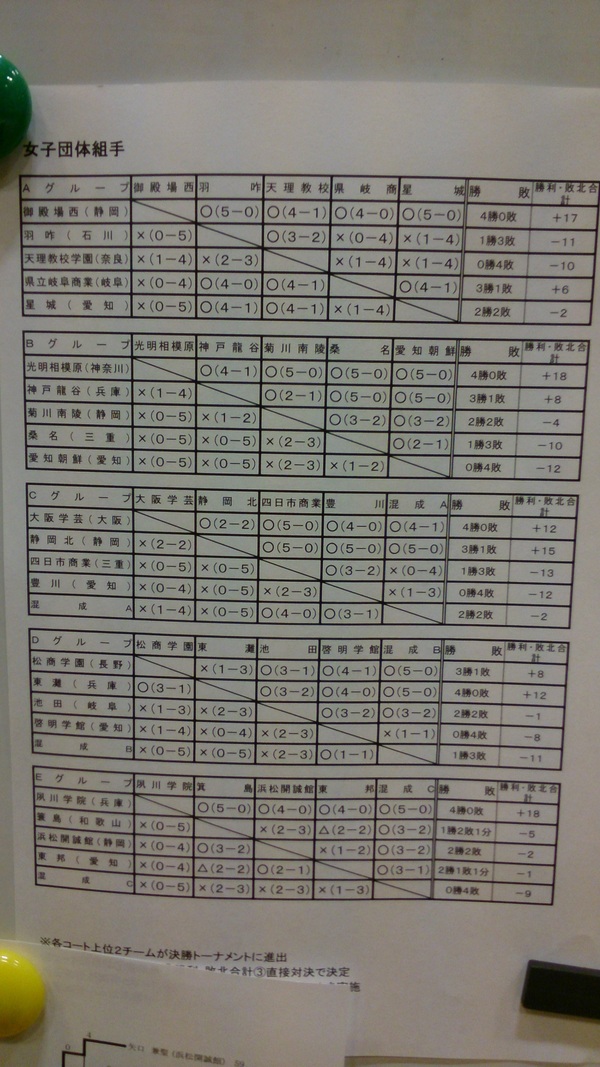 女子団体組手
Aグループ 御殿場西 羽咋 天理教校 県岐商 星城 勝敗 勝利・敗北合計
御殿場西(静岡) ○(5-0) ○(4-1) ○(4-0) ○(5-0) 4勝0敗 +17
羽咋(石川) ×(0-5) ○(3-2) ×(0-4) ×(1-4) 1勝3敗 -11
天理教校学園(奈良) ×(1-4) ×(2-3) ×(1-4) ×(1-4) 0勝4敗 -10
県立岐阜商業(岐阜) ×(0-4) ○(4-0) ○(4-1) ○(4-1) 3勝1敗 +6
星城(愛知) ×(0-5) ○(4-1) ○(4-1) ×(1-4) 2勝2敗 -2
Bグループ 光明相模原 神戸龍谷 菊川南陵 桑名 愛知朝鮮 勝敗 勝利・敗北合計
光明相模原(神奈川) ○(4-1) ○(5-0) ○(5-0) ○(5-0) 4勝0敗 +18
神戸龍谷(兵庫) ×(1-4) ○(2-1) ○(5-0) ○(5-0) 3勝1敗 +8
菊川南陵(静岡) ×(0-5) ×(1-2) ○(3-2) ○(3-2) 2勝2敗 -4
桑名(三重) ×(0-5) ×(0-5) ×(2-3) ○(2-1) 1勝3敗 -10
愛知朝鮮(愛知) ×(0-5) ×(0-5) ×(2-3) ×(1-2) 0勝4敗 -12
Cグループ 大阪学芸 静岡北 四日市商業 豊川 混成A 勝敗 勝利・敗北合計
大阪学芸(大阪) ○(2-2) ○(5-0) ○(4-0) ○(4-1) 4勝0敗 +12
静岡北(静岡) ×(2-2) ○(5-0) ○(5-0) ○(5-0) 3勝1敗 +15
四日市商業(三重) ×(0-5) ×(0-5) ○(3-2) ×(0-4) 1勝3敗 -13
豊川(愛知) ×(0-4) ×(0-5) ×(2-3) ×(1-3) 0勝4敗 -12
混成A ×(1-4) ×(0-5) ○(4-0) ○(3-1) 2勝2敗 -2
Dグループ 松商学園 東灘 池田 啓明学館 混成B 勝敗 勝利・敗北合計
松商学園(長野) ×(1-3) ○(3-1) ○(4-1) ○(5-0) 3勝1敗 +8
東灘(兵庫) ○(3-1) ○(3-2) ○(4-0) ○(5-0) 4勝0敗 +12
池田(岐阜) ×(1-3) ×(2-3) ○(3-2) ○(3-2) 2勝2敗 -1
啓明学館(愛知) ×(1-4) ×(0-4) ×(2-3) ×(1-1) 0勝4敗 -8
混成B ×(0-5) ×(0-5) ×(2-3) ○(1-1) 1勝3敗 -11
Eグループ 夙川学院 箕島 浜松開誠館 東邦 混成C 勝敗 勝利・敗北合計
夙川学院(兵庫) ○(5-0) ○(4-0) ○(4-0) ○(5-0) 4勝0敗 +18
箕島(和歌山) ×(0-5) ×(2-3) △(2-2) ○(3-2) 1勝2敗1分 -5
浜松開誠館(静岡) ×(0-4) ○(3-2) ×(1-2) ○(3-2) 2勝2敗 -2
東邦(愛知) ×(0-4) △(2-2) ○(2-1) ○(3-1) 2勝1敗1分 -1
混成C ×(0-5) ×(2-3) ×(2-3) ×(1-3) 0勝4敗 -9
※各コート上位2チームが決勝トーナメントに進出
敗北合計③直接対決で決定
実施
4
0
矢口 (浜松開誠館)